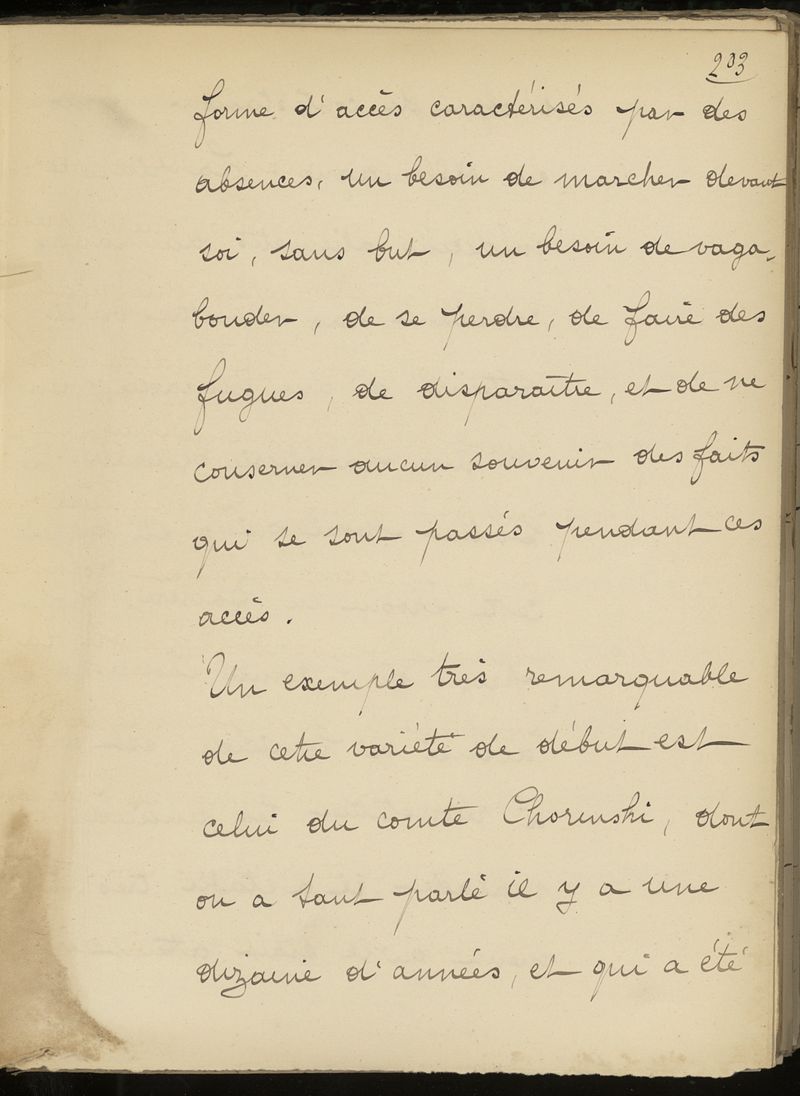 203
forme d'accès caractérisés par des
absences, un besoin de marcher devant
soi, sans but, un besoin de vaga-
bonder, de se perdre, de faire des
fugues, de disparaître, et de ne
conserver aucun souvenir des faits
qui se sont passés pendant ces
accès.
Un exemple très remarquable
de cette variété de début est
celui du comte Chorinski, dont
on a tant parlé il y a une
dizaine d'années, et qui a été